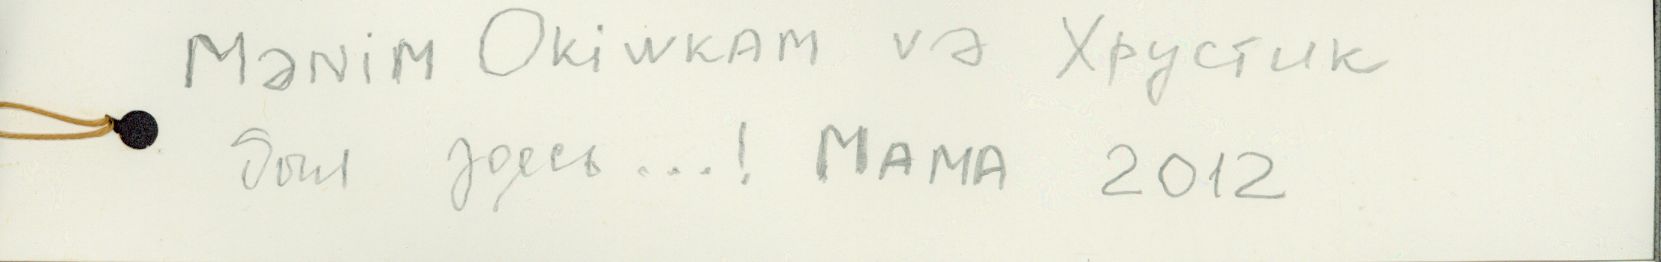 Mənim Okiwkam və Хрустик
был здесь...! Мама 2012